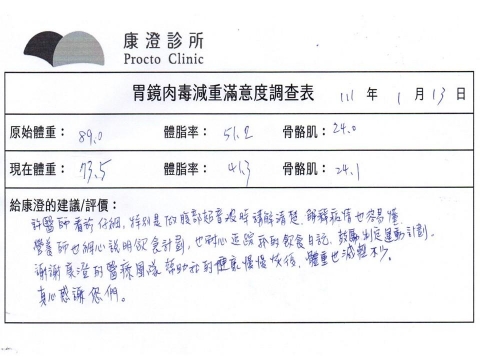 康澄診所
Procto Clinic
胃鏡肉毒減重滿意度調查表 111 年 1 月 13 日
原始體重： 89.0 體脂率： 51.2 骨骼肌： 24.0
現在體重： 73.5 體脂率： 41.3 骨骼肌： 24.1
給康澄的建議/評價：
許醫師看診仔細，特別是做腹部超音波時講解清楚，解釋病情也容易懂，
營養師也細心說明飲食計劃，也耐心追蹤我的飲食日記，鼓勵制定運動計劃。
謝謝康澄的醫療團隊幫助我的健康慢慢恢復，體重也減輕不少。
真心感謝您們。